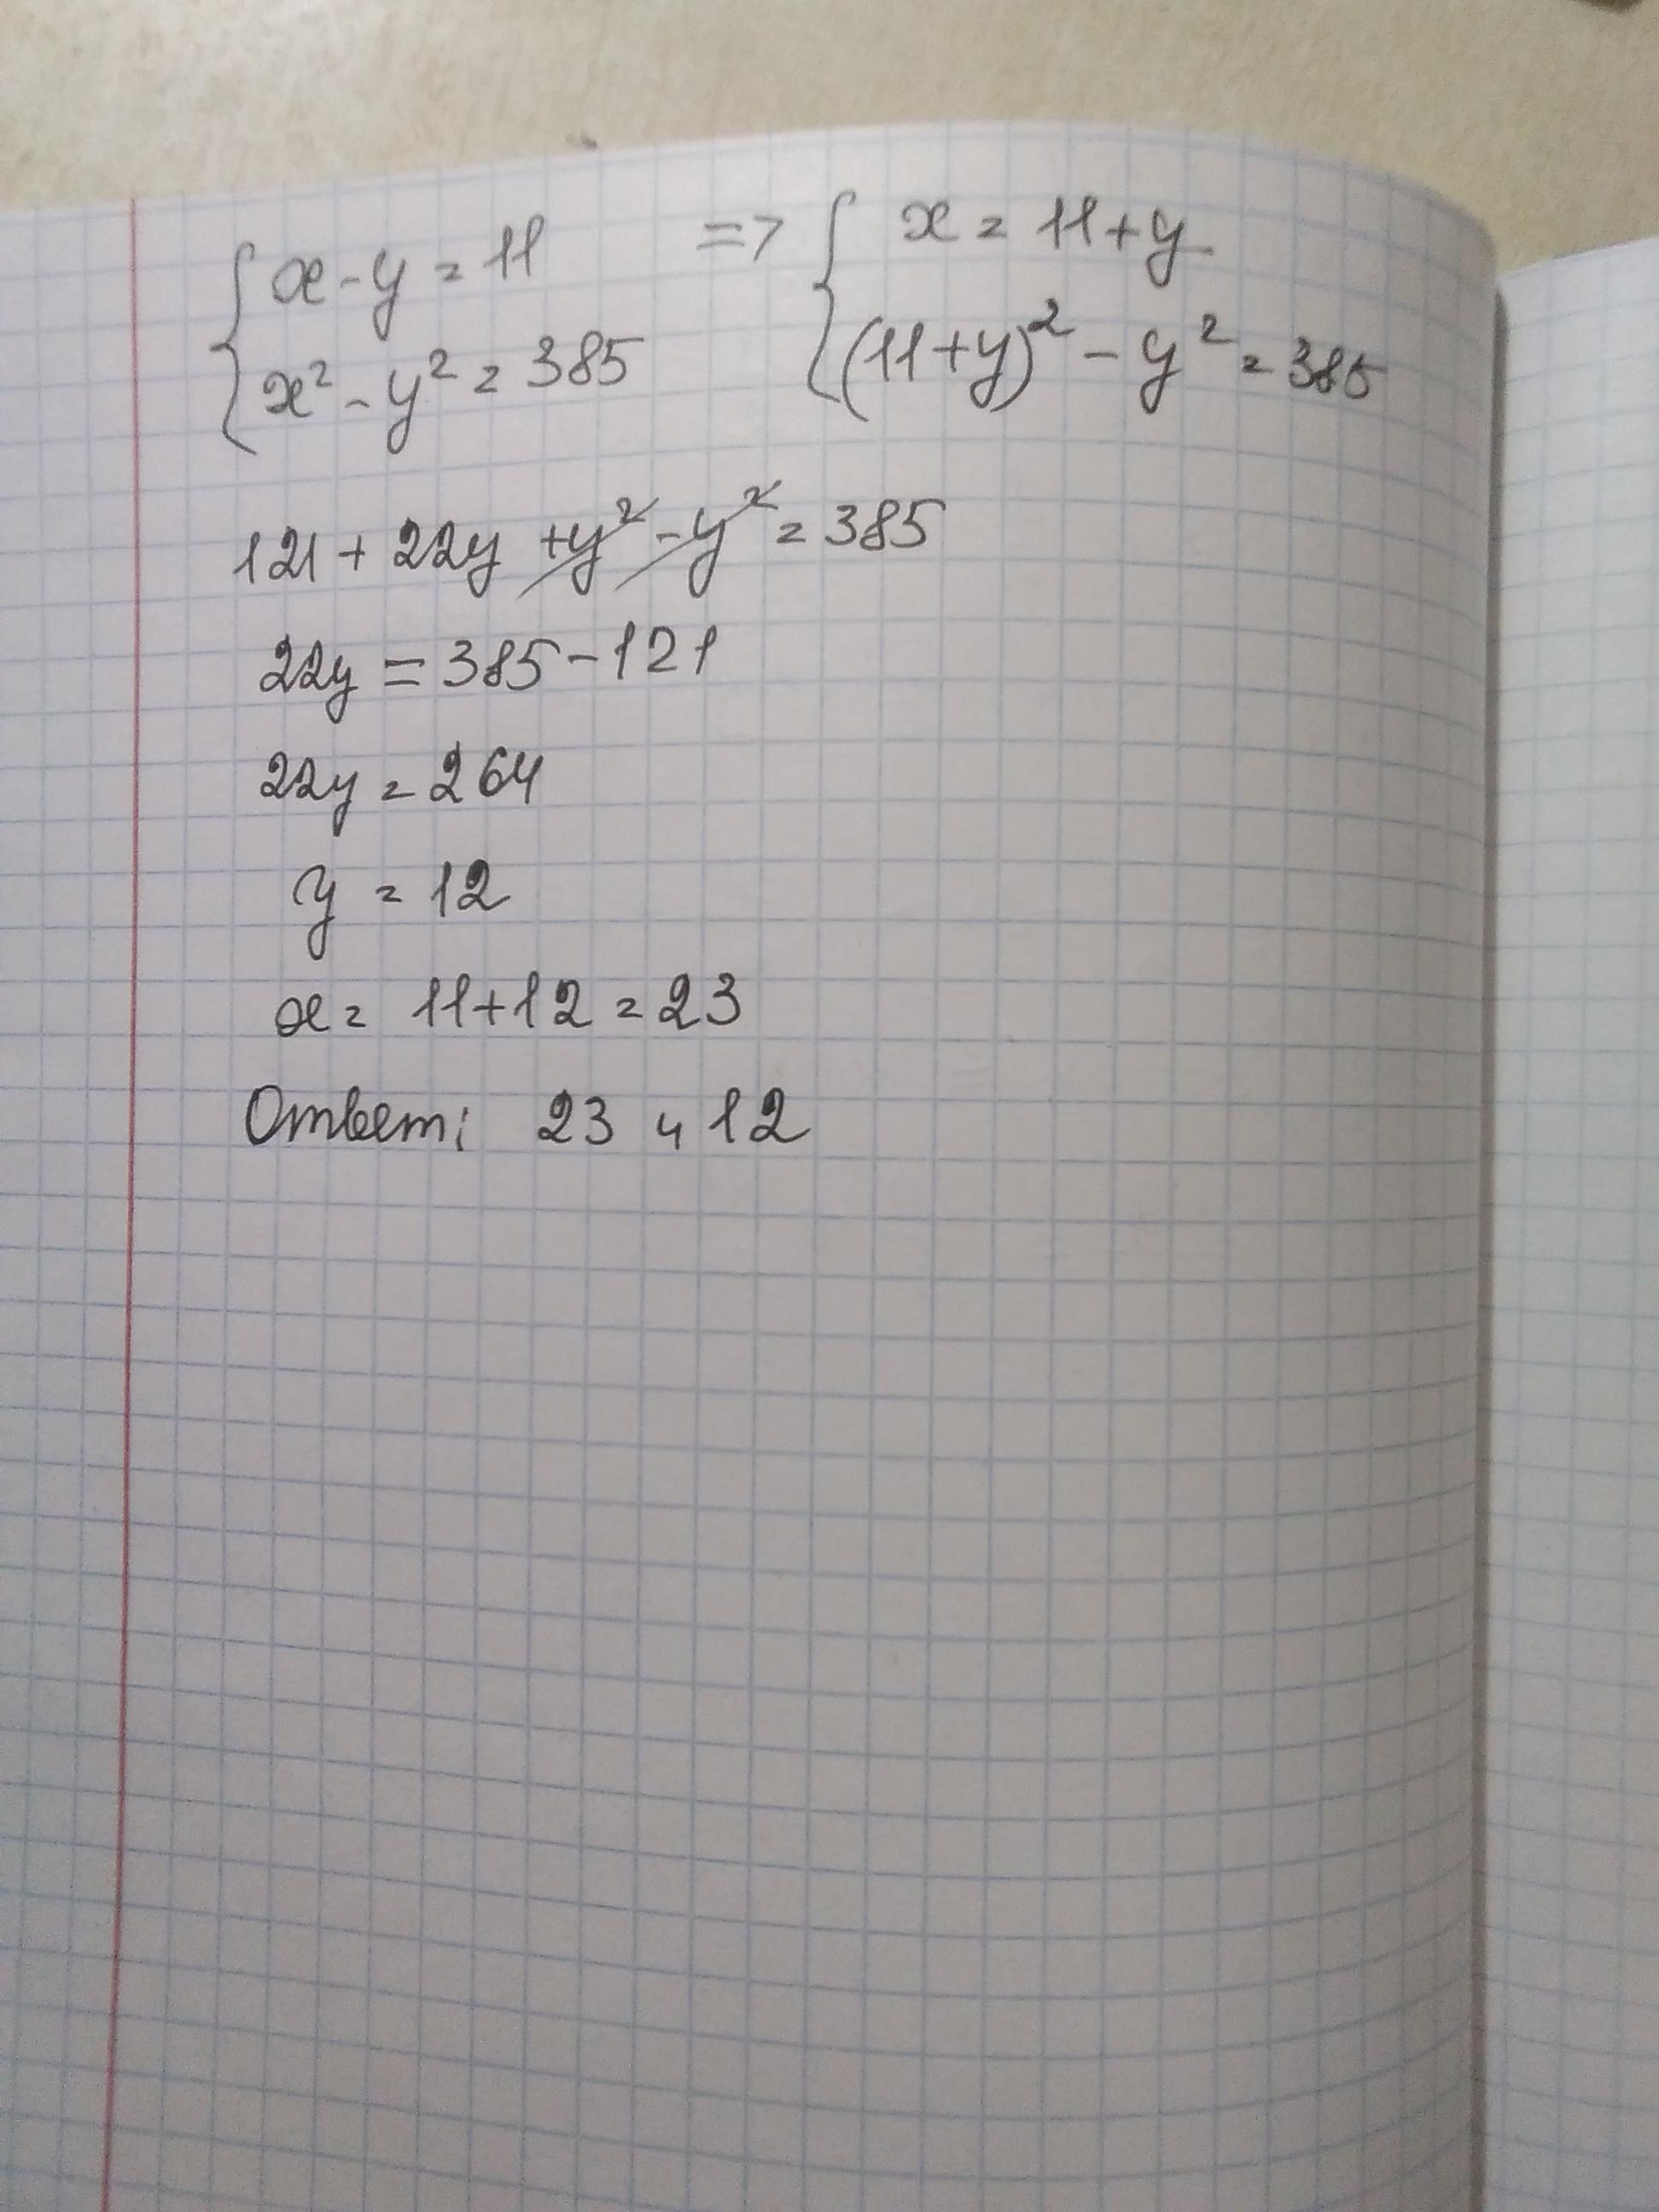 { x - y = 11 => { x = 11 + y
x² - y² = 385 (11 + y)² - y² = 385
121 + 22y + y² - y² = 385
22y = 385 - 121
22y = 264
y = 12
x = 11 + 12 = 23
Ответ: 23 и 12